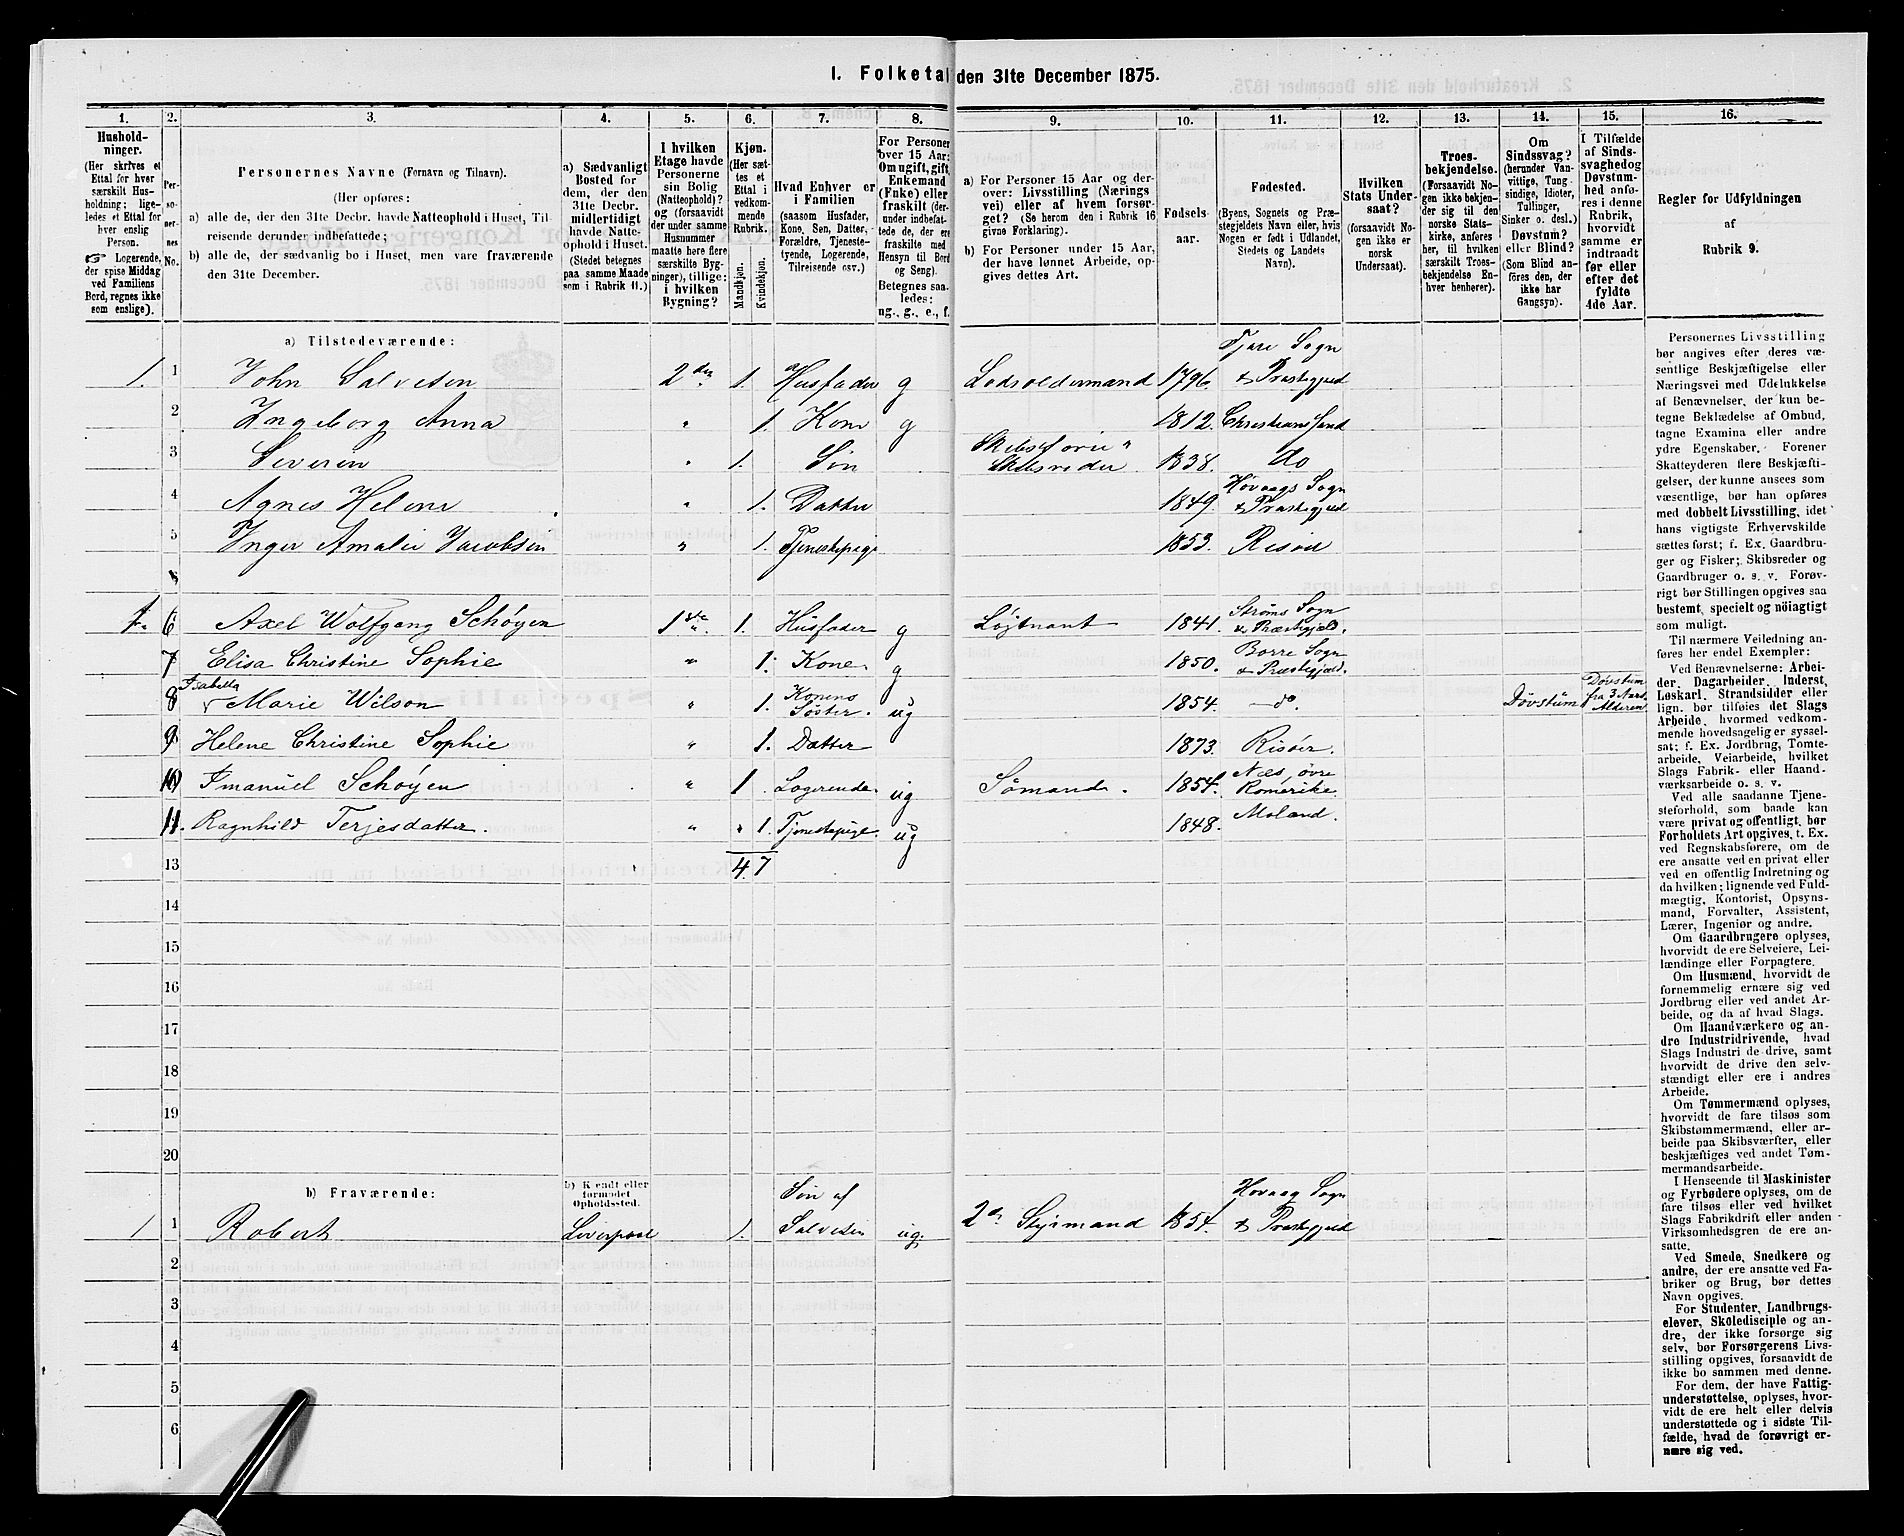 1. Folketal den 31te December 1875.
1. 2. 3. 4. 5. 6. 7. 8. 9. 10. 11. 12. 13. 14. 15. 16.
Hushold-
ninger.
(Her skrives et
Ettal for hver
særskilt Hus-
holdning; lige-
ledes et Ettal for
hver enslig
Person.
☞ Logerende,
der spise Middag
ved Familiens
Bord, regnes ikke
som enslige).
Per-
so-
ner-
nes
No.
Personernes Navne (Fornavn og Tilnavn).
(Her opføres:
a) alle de, der den 31te Decbr. havde Natteophold i Huset, Til-
reisende derunder indbefattede;
b) alle de, der sædvanlig bo i Huset, men vare fraværende
den 31te December.
a) Sædvanligt
Bosted for
dem, der den
31te Decbr.
midlertidigt
havde Natte-
ophold i Huset.
(Stedet betegnes
paa samme Maade
som i Rubrik 11.)
I hvilken
Etage havde
Personerne
sin Bolig
(Natteophold)?
og (forsaavidt
der under samme
Husnummer
maatte høre flere
særskilte Byg-
ninger), tillige:
i hvilken
Bygning?
Kjøn.
(Her sæt-
tes et
Ettal i
vedkom-
mende
Rubrik.
Mandkjøn.
Kvindekjøn.
Hvad Enhver er
i Familien
(saasom Husfader,
Kone, Søn, Datter,
Forældre, Tjeneste-
tyende, Logerende,
Tilreisende osv.)
For Personer
over 15 Aar:
Om ugift, gift,
Enkemand
(Enke) eller
fraskilt (der-
under indbefat-
tede de, der ere
fraskilte med
Hensyn til Bord
og Seng).
Betegnes saa-
ledes:
ug., g., e., f.
a) For Personer 15 Aar og der-
over: Livsstilling (Nærings
vei) eller af hvem forsør-
get? (Se herom den i Rubrik 16
givne Forklaring).
b) For Personer under 15 Aar,
der have lønnet Arbeide, op-
gives dettes Art.
Fødsels-
aar.
Fødested.
(Byens, Sognets og Præ-
stegjeldets Navn eller, hvis
Nogen er født i Udlandet,
Stedets og Landets
Navn).
Hvilken
Stats Under-
saat?
(forsaavidt No-
gen ikke er
norsk
Undersaat).
Troes-
bekjendelse.
(Forsaavidt No-
gen ikke bekjen-
der sig til den
norske Stats-
kirke, anføres
her, til hvilken
særskilt Troes-
bekjendelse En-
hver henhører).
Om
Sindssvag?
(herunder Van-
vittige, Tung-
sindige, Idioter,
Tullinger,
Sinker o. desl.)
Døvstum?
eller Blind?
(Som Blind an-
føres den, der
ikke har
Gangsyn).
I Tilfælde
af Sinds-
svaghed og
Døvstum-
hed anfø-
res i denne
Rubrik,
hvorvidt
samme er
indtraadt
før eller
efter det
fyldte
4de Aar.
Regler for Udfyldningen
af
Rubrik 9.
a) Tilstedeværende:
1. 1 John Salvesen 2den 1. Husfader g Lodsoldermand 1796. Fjære Sogn & Præstegjeld
2 Ingeborg Anna " 1. Kone g 1812. Christianssand
3 Severin " 1. Søn Skibsfører " Skibsreder 1838. do
4 Agnes Helene " 1. Datter 1849. Høvaags Sogn & Præstegjeld
5 Inger Amalie Jacobsen " 1. Tjenestepige 1853. Risør
1. 6 Axel Wolfgang Schøyen 1ste 1. Husfader g Løjtnant 1841. Strøms Sogn & Præstegjeld.
7 Elisa Christine Sophie " 1. Kone g 1850. Borre Sogn & Præstegjeld.
8 Isabella Marie Wilson " 1. Konens Søster. ug 1854. — do. Døvstum Døvstum fra 3 Aars Alderen
9 Helene Christine Sophie " 1. Datter 1873. Risøer.
10 Imanuel Schøyen " 1. Logerende ug Sømand. 1854. Næs, øvre Romerike
11. Ragnhild Terjesdatter. " 1. Tjenestepige. ug 1848. Moland.
13 4 7
14
15
16
17
18
19
20
b) Fraværende:
b) Kjendt eller
formodet
Opholdssted.
1 1 Robert Liverpool 1. Søn af Salvesen ug. 2den Styrmand 1854. Høvaag Sogn & Præstegjeld
2
3
4
5
6
Personernes Livsstilling
bør angives efter deres væ-
sentlige Beskjæftigelse eller
Næringsvei med Udelukkelse
af Benævnelser, der kun be-
tegne Beklædelse af Ombud,
tagne Examina eller andre
ydre Egenskaber. Forener
Skatteyderen flere Beskjæfti-
gelser, der kunne ansees som
væsentlige, bør han opføres
med dobbelt Livsstilling, idet
hans vigtigste Erhvervskilde
sættes først; f. Ex. Gaardbru-
ger og Fisker; Skibsreder og
Gaardbruger o. s. v. Forøv-
rigt bør Stillingen opgives saa
bestemt, specielt og nöiagtig
som muligt.
Til nærmere Veiledning an-
føres her endel Exempler:
Ved Benævnelserne: Arbei-
der, Dagarbeider, Inderst,
Løskarl, Strandsidder eller
lign. bør tilføies det Slags
Arbeide, hvormed vedkom-
mende hovedsagelig er syssel-
sat; f. Ex. Jordbrug, Tomte-
arbeide, Veiarbeide, hvilket
Slags Fabrik- eller Haand-
værksarbeide o. s. v.
Ved alle saadanne Tjene-
steforhold, som baade kan
være privat og offentligt, bør
Forholdets Art opgives, t. Ex.
ved Regnskabsførere, om de
ere ansatte ved en privat eller
ved en offentlig Indretning og
da hvilken; lignende ved Fuld-
mægtig, Kontorist, Opsyns-
mand, Forvalter, Assistent,
Lærer, Ingeniør og andre.
Om Gaardbrugere oplyses,
hvorvidt de ere Selveiere, Lei-
lændinge eller Forpagtere.
Om Husmænd, hvorvidt de
fornemmelig ernære sig ved
Jordbrug eller ved andet Ar-
beide, og da af hvad Slags.
Om Haandværkere og an-
dre Industridrivende, hvad
Slags Industri de drive, samt
hvorvidt de drive den selv-
stændigt eller ere i andres
Arbeide.
Om Tømmermænd oplyses,
hvorvidt de fare tilsøs som
Skibstømmermænd, eller ar-
beide paa Skibsværfter, eller
beskjæftiges ved andet Tøm-
mermandsarbeide.
I Henseende til Maskinister
og Fyrbødere oplyses, om de
fare tilsøs eller ved hvilket
Slags Fabrikdrift eller anden
Virksomhedsgren de ere an-
satte.
Ved Smede, Snedkere og
andre, der ere ansatte ved Fa-
briker og Brug, bør dettes
Navn opgives.
For Studenter, Landbrugs-
elever, Skoledisciple og an-
dre, der ikke forsørge sig
selv, bør Forsørgerens Livs-
stilling opgives, forsaavidt de
ikke bo sammen med denne.
For dem, der have Fattig-
understøttelse, oplyses, hvor-
vidt de ere helt eller delvis
understøttede og i sidste Til-
fælde, hvad de forøvrigt er-
nære sig ved.